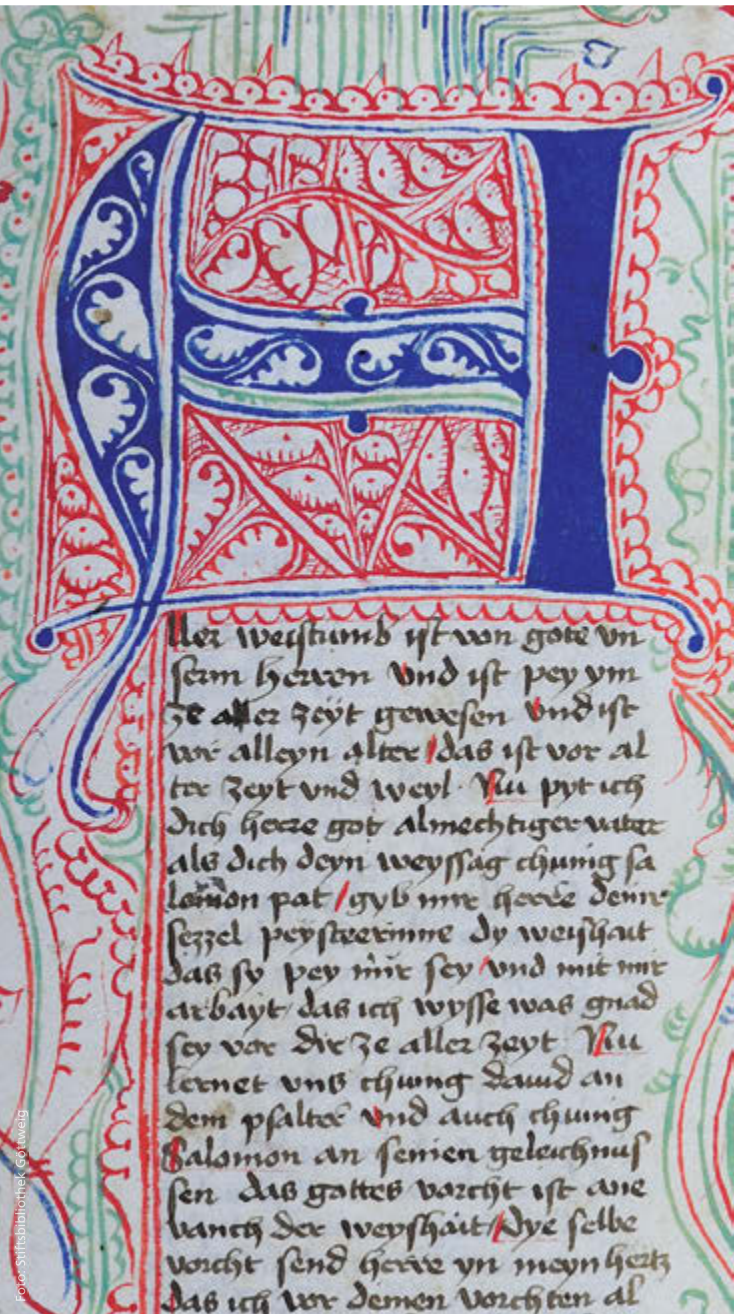 Aller weistumb ist von gote vn
serm herren vnd ist pey ym
ze aller zeyt gewesen vnd ist
vor alleyn alter / das ist vor al
ter zeyt vnd weyl. Nu pyt ich
dich herre got almechtiger vater
als dich deyn weyssag chunig sa
lomon pat / gyb mir herre deiner
sezzel peysteerinne dy weishait
das sy pey mir sey / vnd mit mir
arbayt / das ich wysse was gnad
sey vor dir ze aller zeyt Nu
lernet vns chunig dauid an
dem psalter vnd auch chunig
Salomon an seinen geleichnus
sen das gottes vorcht ist ane
vanch der weyshait / Dye selbe
vorcht send herre yn meyn hertz
das ich vor deinen vorchten al
Foto: Stiftsbibliothek Göttweig